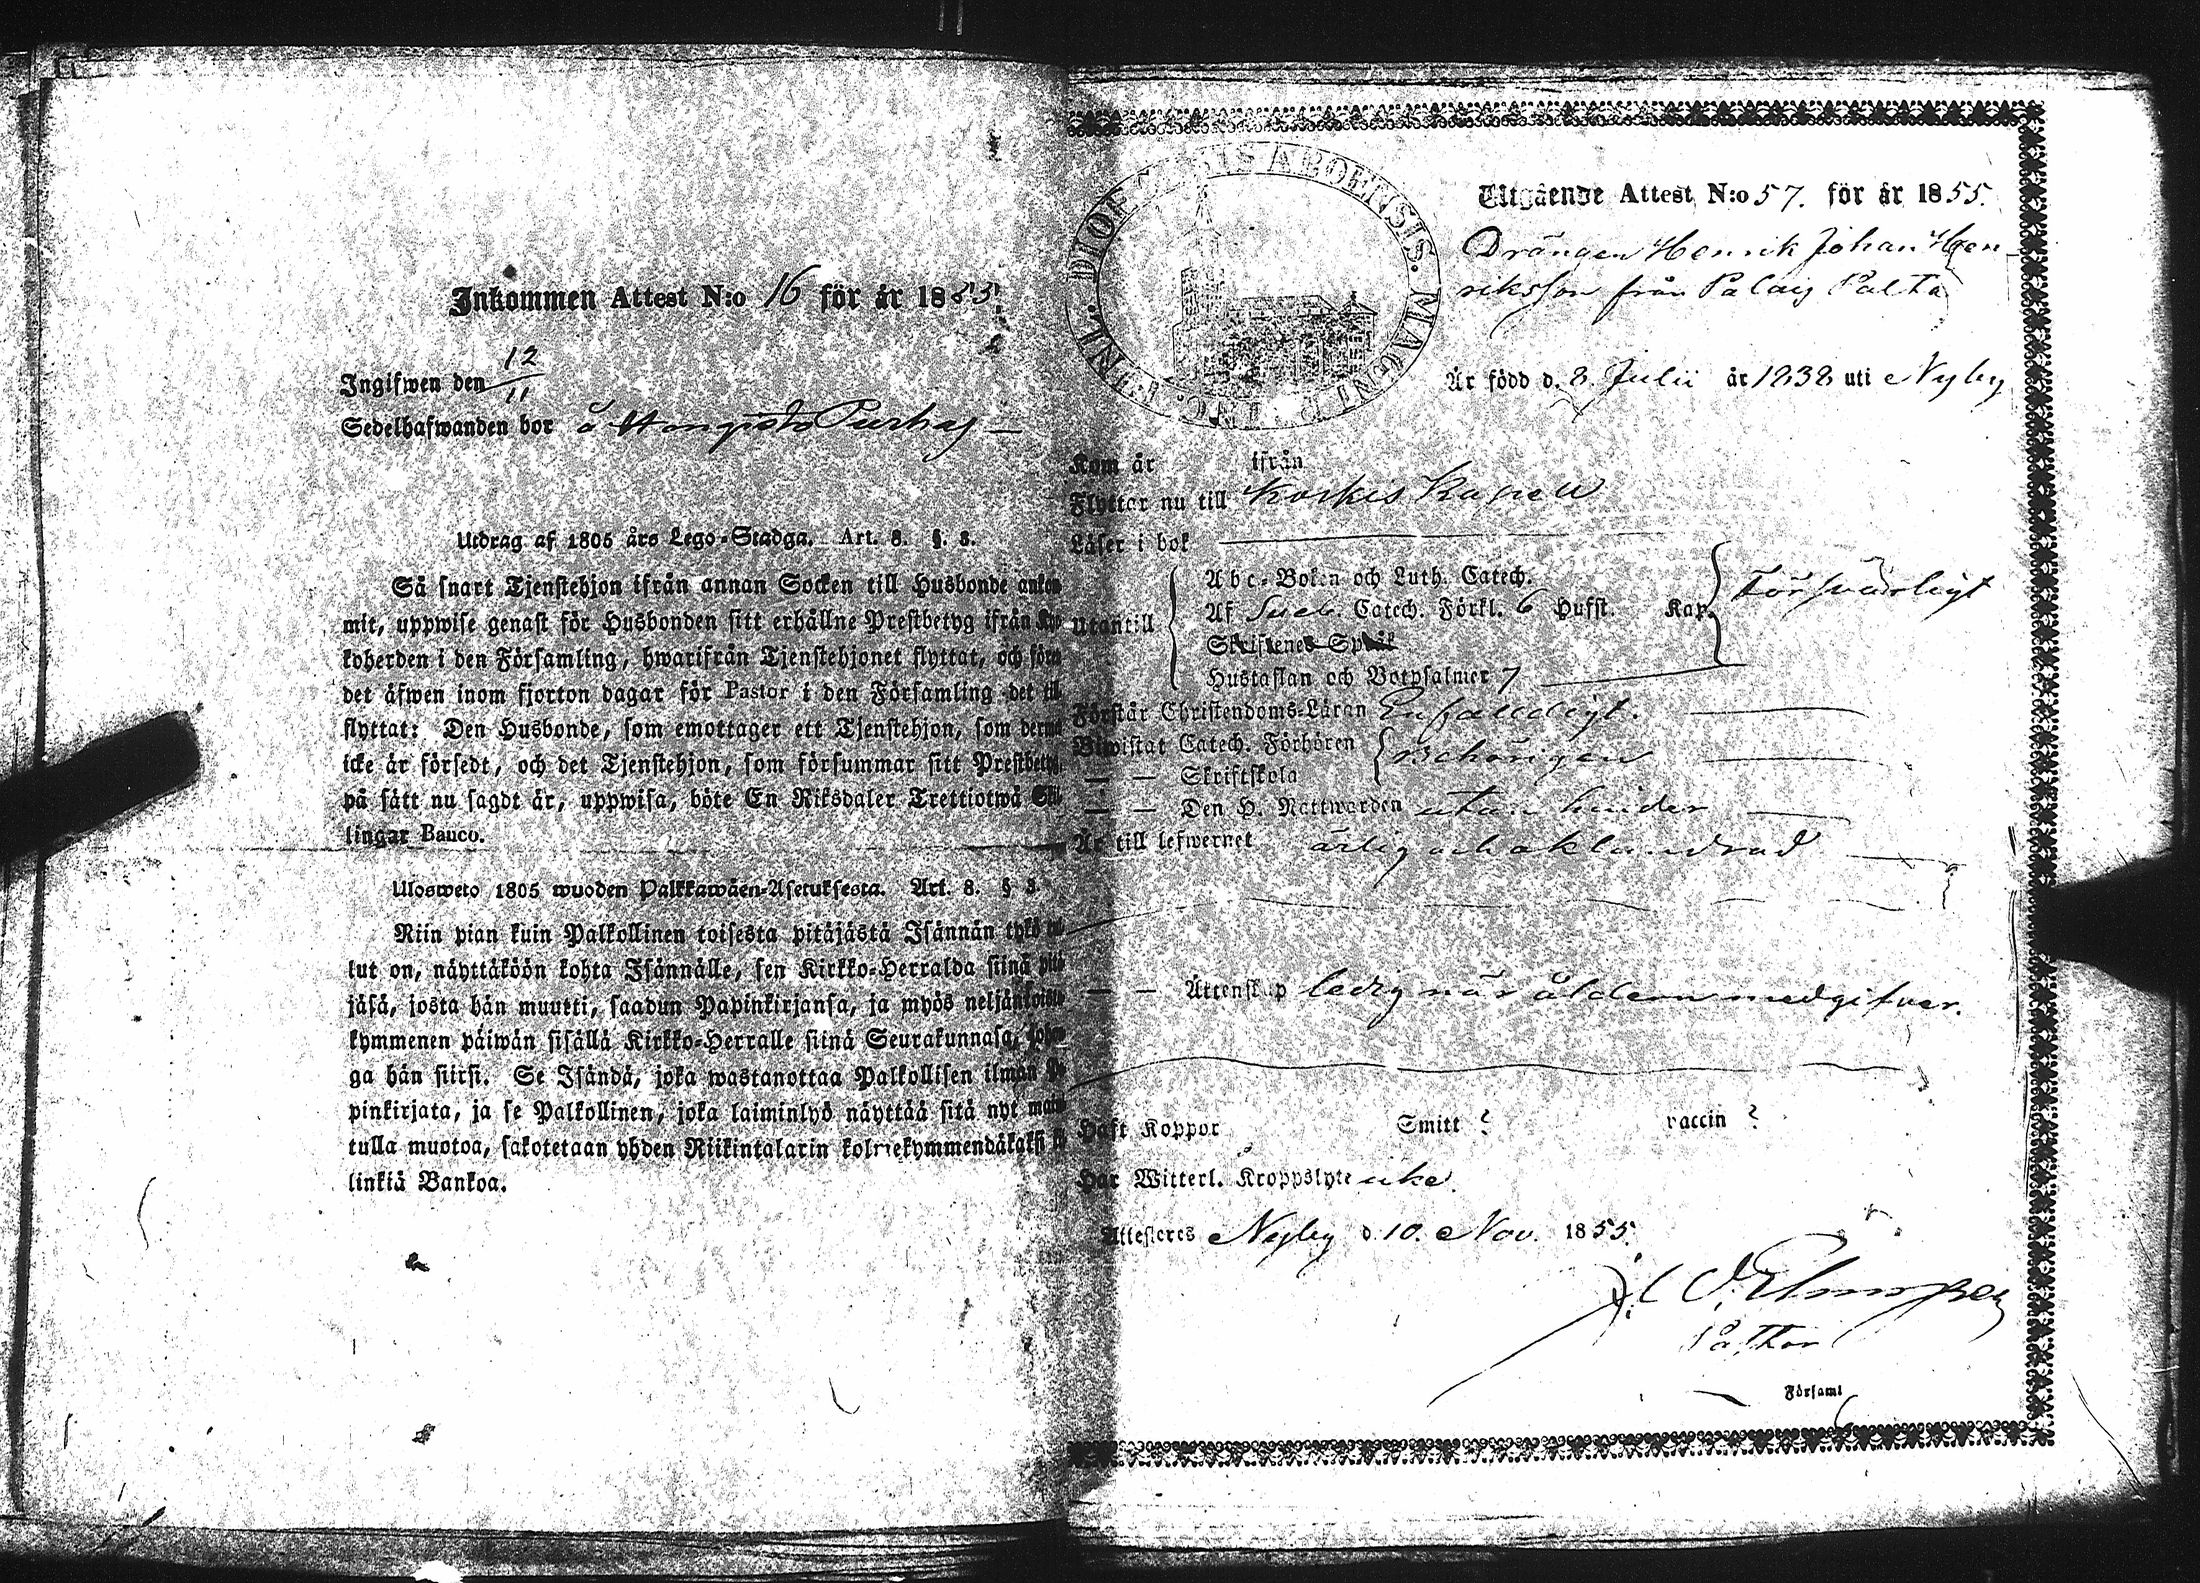 Inkommen Attest N:o 16 för år 1855.
Ingifwen den 12/11
Sedelhafwanden bor å Hongisto Purhaj
Utdrag af 1805 års Lego-Stadga. Art. 8. §. 3.
Så snart Tjenstehjon ifrån annan Socken till Husbonde ankom-
mit, uppwise genast för Husbonden sitt erhållne Prestbetyg ifrån Kyr-
koherden i den Församling, hwarifrån Tjenstehjonet flyttat, och före
det äfwen inom fjorton dagar för Pastor i den Församling det till-
flyttat: Den Husbonde, som emottager ett Tjenstehjon, som dermed
icke är försedt, och det Tjenstehjon, som försummar sitt Prestbetyg,
på sätt nu sagdt är, uppwisa, böte En Riksdaler Trettiotwå Skil-
lingar Banco.
Ulosweto 1805 wuoden Palkkawäen-Asetuksesta. Art. 8. § 3.
Niin pian kuin Palkollinen toisesta pitäjästä Isännän tykö tul-
lut on, näyttäköön kohta Isännälle, sen Kirkko-Herralda siinä pitä-
jäsä, josta hän muutti, saadun Papinkirjansa, ja myös neljäntoista-
kymmenen päiwän sisällä Kirkko-Herralle siinä Seurakunnasa, johon-
ga hän siirsi. Se Isändä, joka wastanottaa Palkollisen ilman Pa-
pinkirjata, ja se Palkollinen, joka laiminlyö näyttää sitä nyt maini-
tulla muotoa, sakotetaan yhden Riikintalarin kolmekymmendäkaksi kil-
linkiä Bankoa.
DIOECESIS ABOENSIS. MAGNI PRINC. FENL.
Utgående Attest N:o 57. för år 1855.
Drängen Henrik Johan Hen-
riksson från Palais Palta
Är född d. 8. Julii år 1838 uti Nyby
Kom år ifrån
Flyttar nu till Koskis Kapell
Läser i bok
Abc-Boken och Luth. Catech.
Utantill Af Sveb. Catech. Förkl. 6 Hufst. Kap. Försvarligt
Skriftenes Språk
Hustaflan och Botpsalmer 7
Förstår Christendoms-Läran Enfaldigt.
Biwistat Catech. Förhören
— — Skriftskola behörigen
— — Den H. Nattwarden utan hinder
Är till lefwernet ärlig och oklandrad
— — Äktenskap ledig när åldern medgifver.
Haft Koppor Smitt ? vaccin ?
Har Witterl. Kroppslyte icke.
Attesteres Nyby d. 10. Nov. 1855.
Pastor
Församl